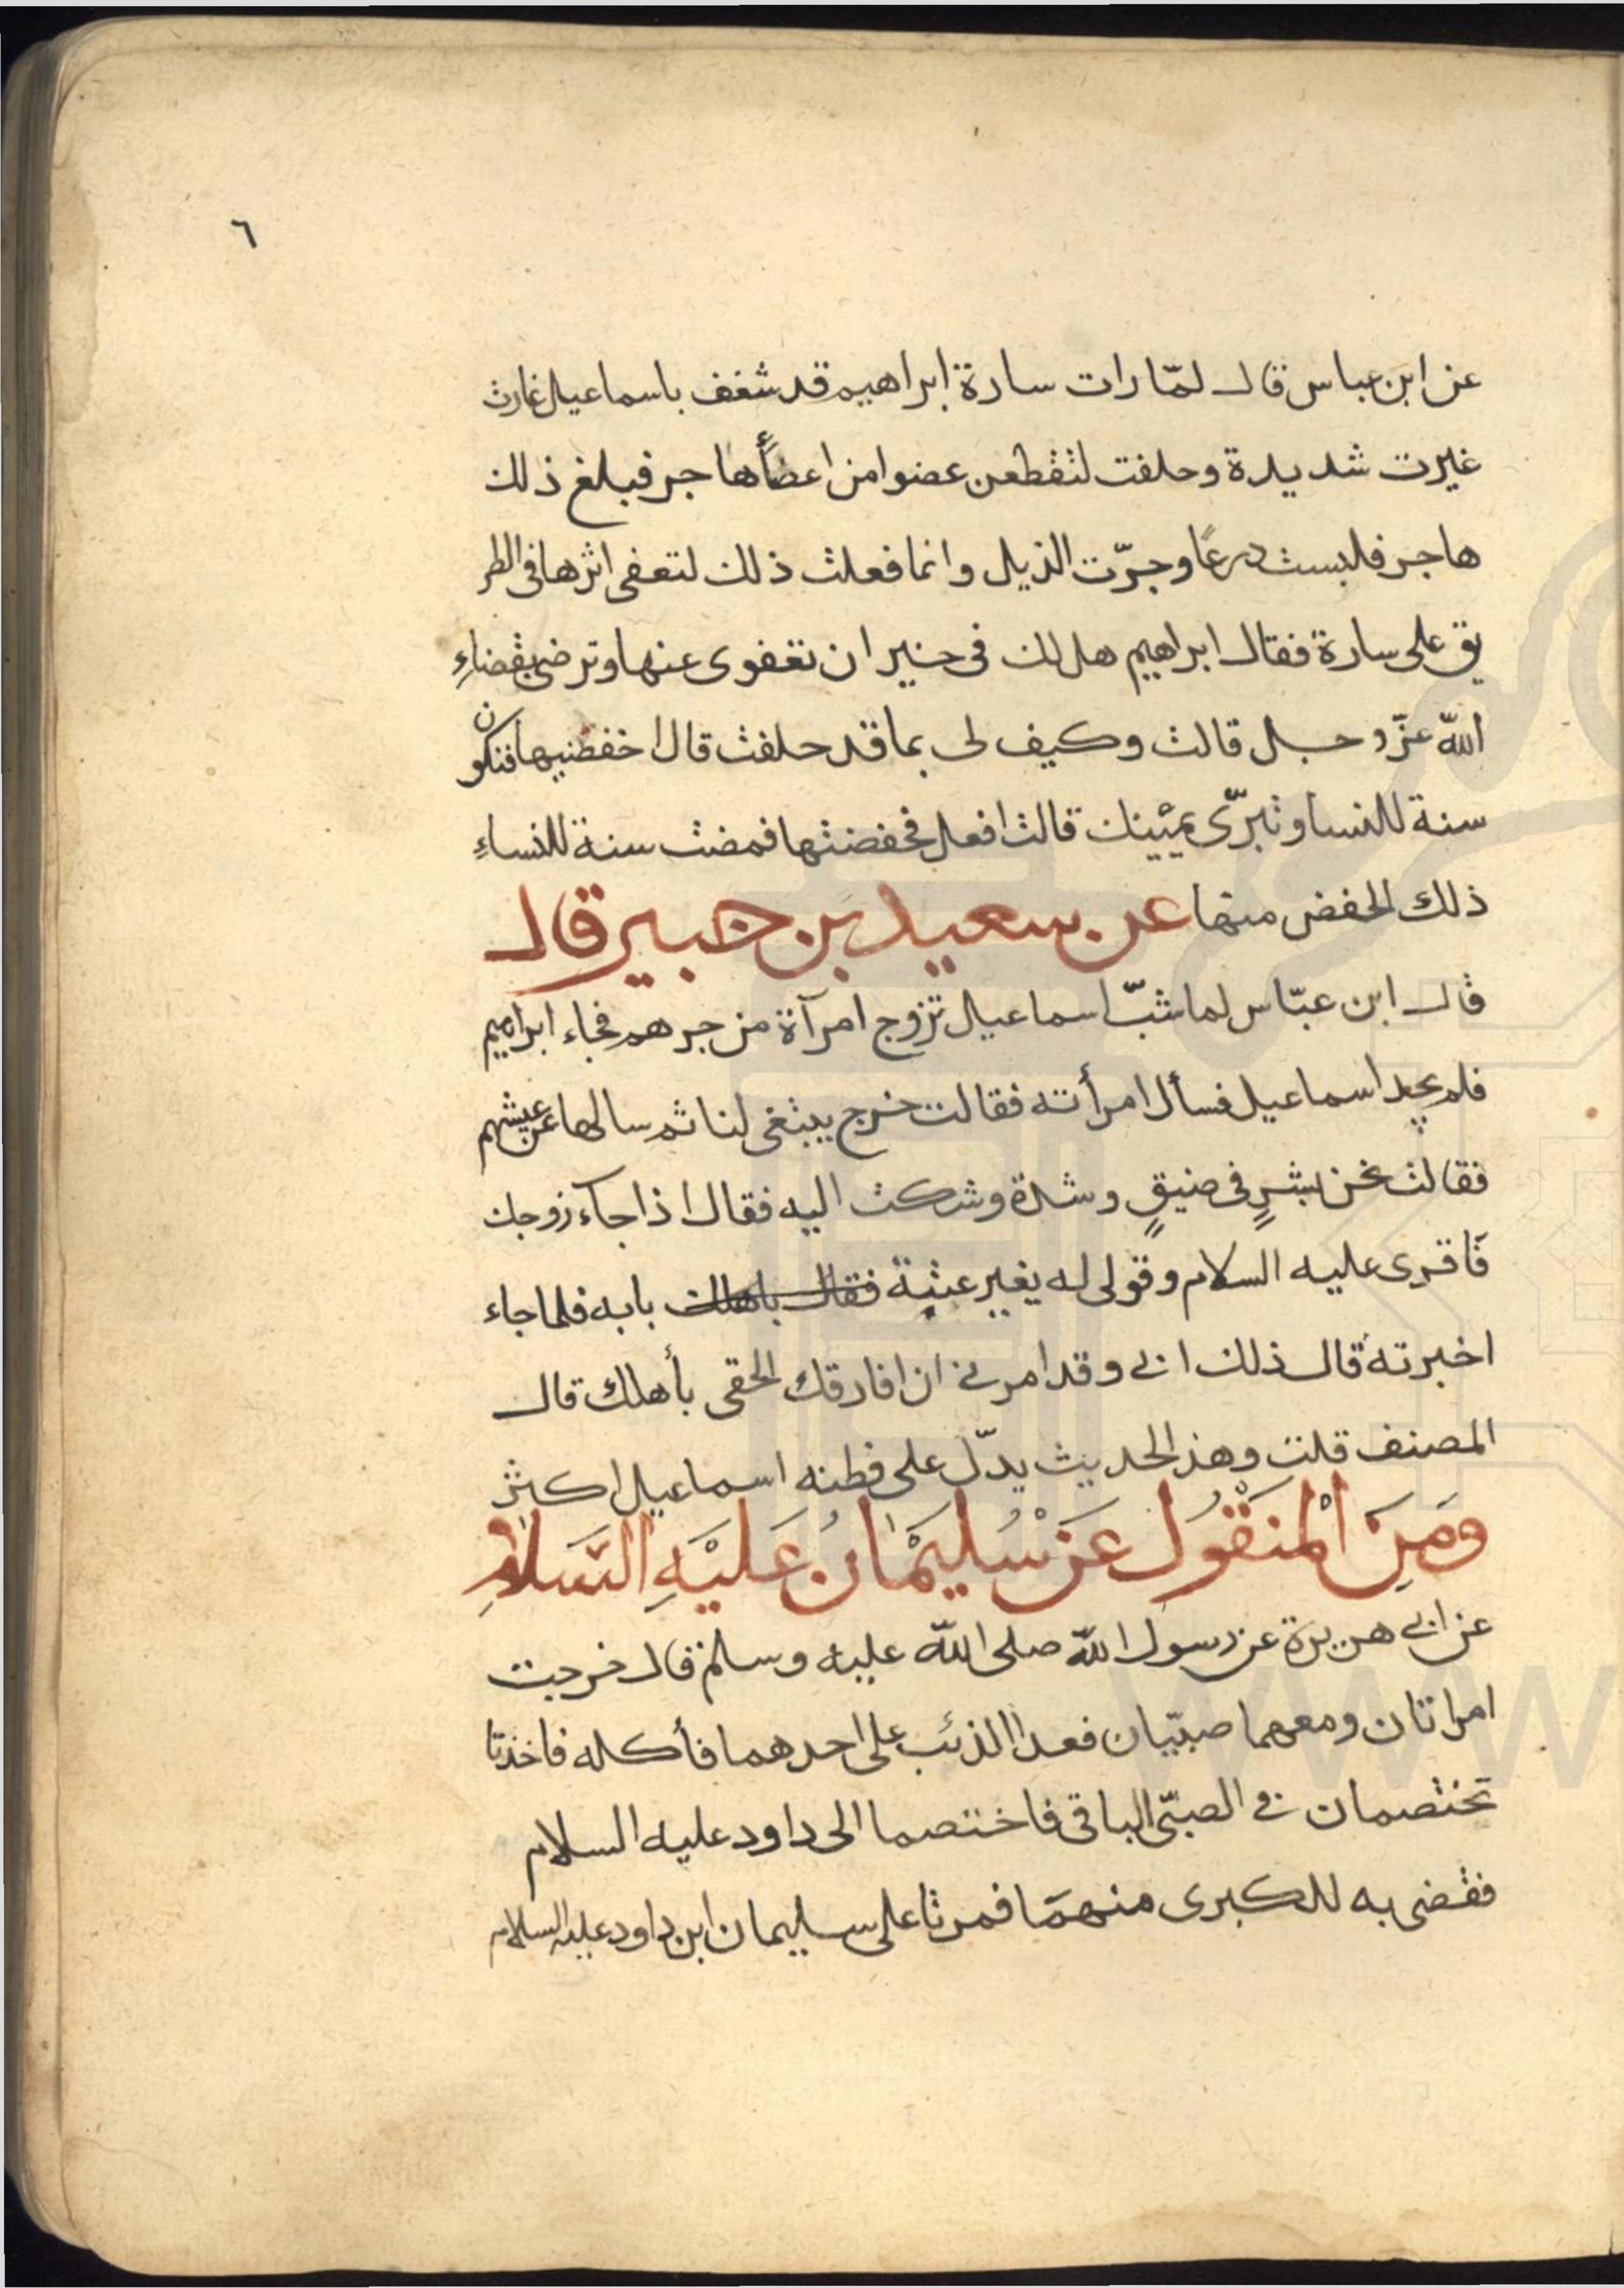 ٦
عن ابن عباس قال لمّا رات سارة ابراهيم قد شغف باسماعيل غارت
غيرت شديدة وحلفت لتقطعن عضوا من اعضأها جر فبلغ ذلك
هاجر فلبست درعًا وجرّت الذيل وانما فعلت ذلك لتعفى اثرها فى الطر
يق على سارة فقال ابراهيم هل لك فى خير ان تعفوى عنها وترضى بقضاءِ
اللّه عزّ وجل قالت وكيف لى بما قد حلفت قال اخفضيها فتكون
سنة للنسا وتبرّى يمينك قالت افعل فخفضتها فمضت سنة للنساءِ
ذلك الخفض منها عن سعيد بن جبير قال
قال ابن عبّاس لما شبّ اسماعيل تزوج امرآة من جرهم فجاء ابراهيم
فلم يجد اسماعيل فسأل امرأته فقالت خرج يبتغى لنا ثم سالها عن عيشهم
فقالت نحن بشرٍ فى ضيقٍ وشدة وشكت اليه فقال اذا جآء زوجك
فاقرى عليه السلام وقولى له يغير عتبة فقال باهلك بابه فلما جاء
اخبرته قال ذلك ابى وقد امرنى ان افارقك الحقى بأهلك قال
المصنف قلت وهذ الحديث يدّل على فطنه اسماعيل اكثر
وَمِنَ الْمنَقْوُل عَنْ سُليمْٰان عَليَهِ السَلامِ
عن ابى هريرة عن رسول اللّه صلى اللّه عليه وسلم قال خرجت
امراتان ومعهما صبيّان فعدا الذئب على احدهما فأكله فاخذتا
تختصمان فى الصبّى الباقى فاختصما الى داود عليه السلام
فقضى به للكبرى منهمَا فمرتا على سليمان ابن داود عليه السلام
www